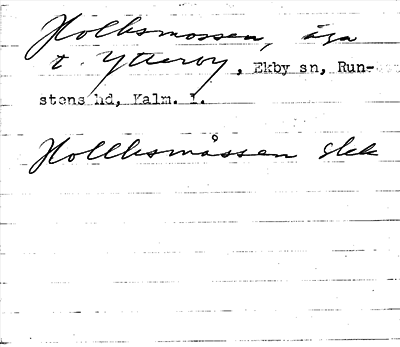 Holksmossen, äga
t. Ytteröy, Ekby sn, Run-
stens hd, Kalm. l.
Hollksmåssen skk